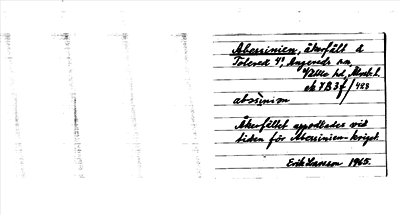 Abessinien, åkerfält å
Tolered 4², Angereds sn,
Vättle hd, Älvsb. l.
ek 7B3f/428
abesi̱niən
Åkerfältet uppodlades vid
tiden för Abessinien-kriget.
Erik Larsson 1965.